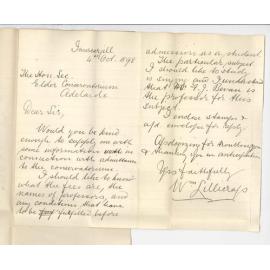 Inverell
4th Oct. 1898
The Hon. Sec.
Elder Conservatorium
Adelaide
Dear Sir,
Would you be kind
enough to supply me with
some information with in
connection with admittance
to the conservatorium.
I should like to know
what the fees are, the
names of professors, and
any conditions that have
to be fulfilled before
admission as a student.
The particular subject
I should like to study
is singing and I understand
that Mr G. J. Bevan is
the professor for this
subject.
I enclose stamps &
add. envelope for reply.
Apologising for troubling you
& thanking you in anticipation
Yrs faithfully
Wm Lillicrap